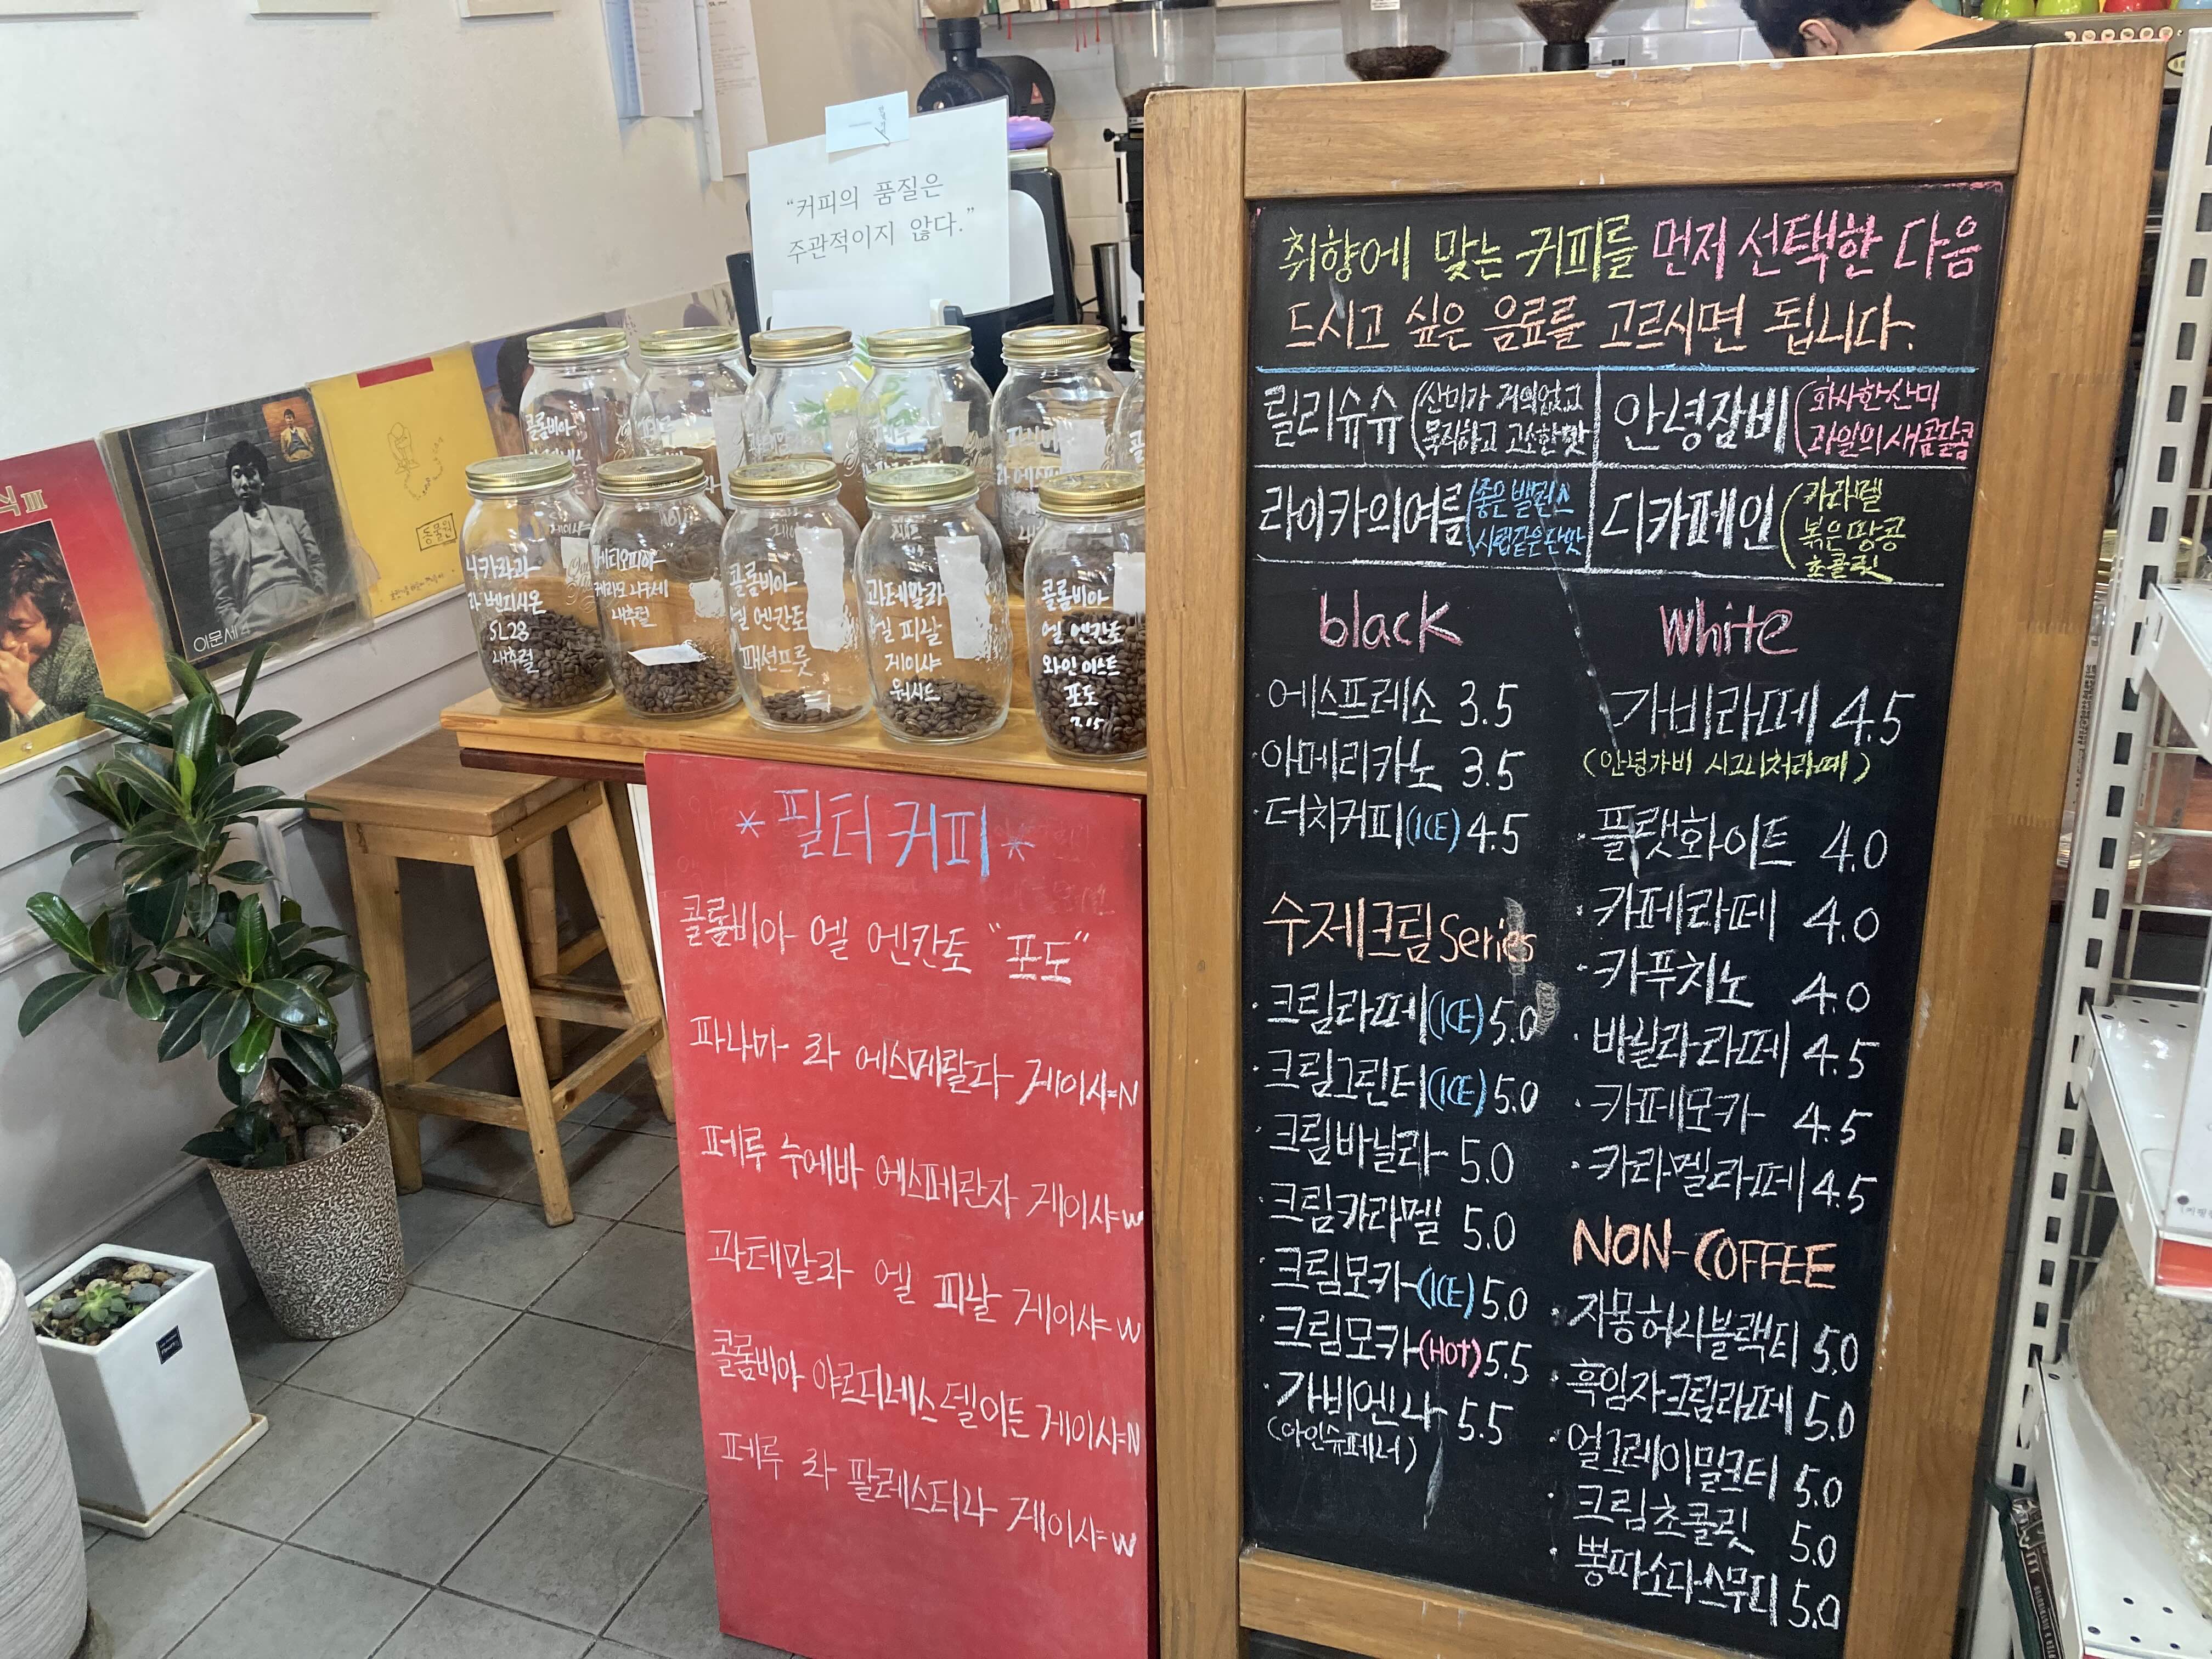 “커피의 품질은
주관적이지 않다.”
취향에 맞는 커피를 먼저 선택한 다음
드시고 싶은 음료를 고르시면 됩니다.
릴리슈슈 (산미가 거의없고
묵직하고 고소한맛
안녕잠비 (화사한산미
과일의 새콤달콤
라이카의여름 (좋은 밸런스
시럽같은단맛
디카페인 (카라멜
볶은땅콩
초콜릿
black
에스프레소 3.5
아메리카노 3.5
더치커피(ICE) 4.5
수제크림 Series
크림라떼(ICE) 5.0
크림그린티(ICE) 5.0
크림바닐라 5.0
크림카라멜 5.0
크림모카(ICE) 5.0
크림모카(HOT) 5.5
가비엔나 5.5
(아인슈페너)
White
가비라떼 4.5
(안녕가비 시그니처라떼)
플랫화이트 4.0
카페라떼 4.0
카푸치노 4.0
바닐라라떼 4.5
카페모카 4.5
카라멜라떼 4.5
NON-COFFEE
자몽허니블랙티 5.0
흑임자크림라떼 5.0
얼그레이밀크티 5.0
크림초콜릿 5.0
뽕따소다스무디 5.0
*필터커피*
콜롬비아 엘 엔칸토 "포도"
파나마 라 에스메랄다 게이샤=N
페루 누에바 에스페란자 게이샤=W
과테말라 엘 피날 게이샤=W
콜롬비아 야르디네스 델 이든 게이샤=N
페루 라 팔레스티라 게이샤=W
니카라과
라 벤디시온
SL28
내추럴
에티오피아
내추럴
콜롬비아
엘 엔칸토
패션프룻
과테말라
엘 피날
게이샤
워시드
콜롬비아
엘 엔칸토
와인 이스트
포도
콜롬비아
이문세 4
동물원